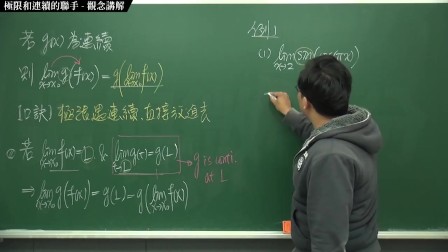 極限和連續的聯手 - 觀念講解
若 g(x) 為連續
則 lim_{x→x₀} g(f(x)) = g(lim_{x→x₀} f(x))
[口訣] 極限遇連續,直接
② 若 lim_{x→x₀} f(x) = L & lim_{t→L} g(t) = g(L)
→ g is conti. at L
⇒ lim_{x→x₀} g(f(x)) = g(L) = g(lim_{x→x₀} f(x))
例 1
(1) lim_{x→2} sin(